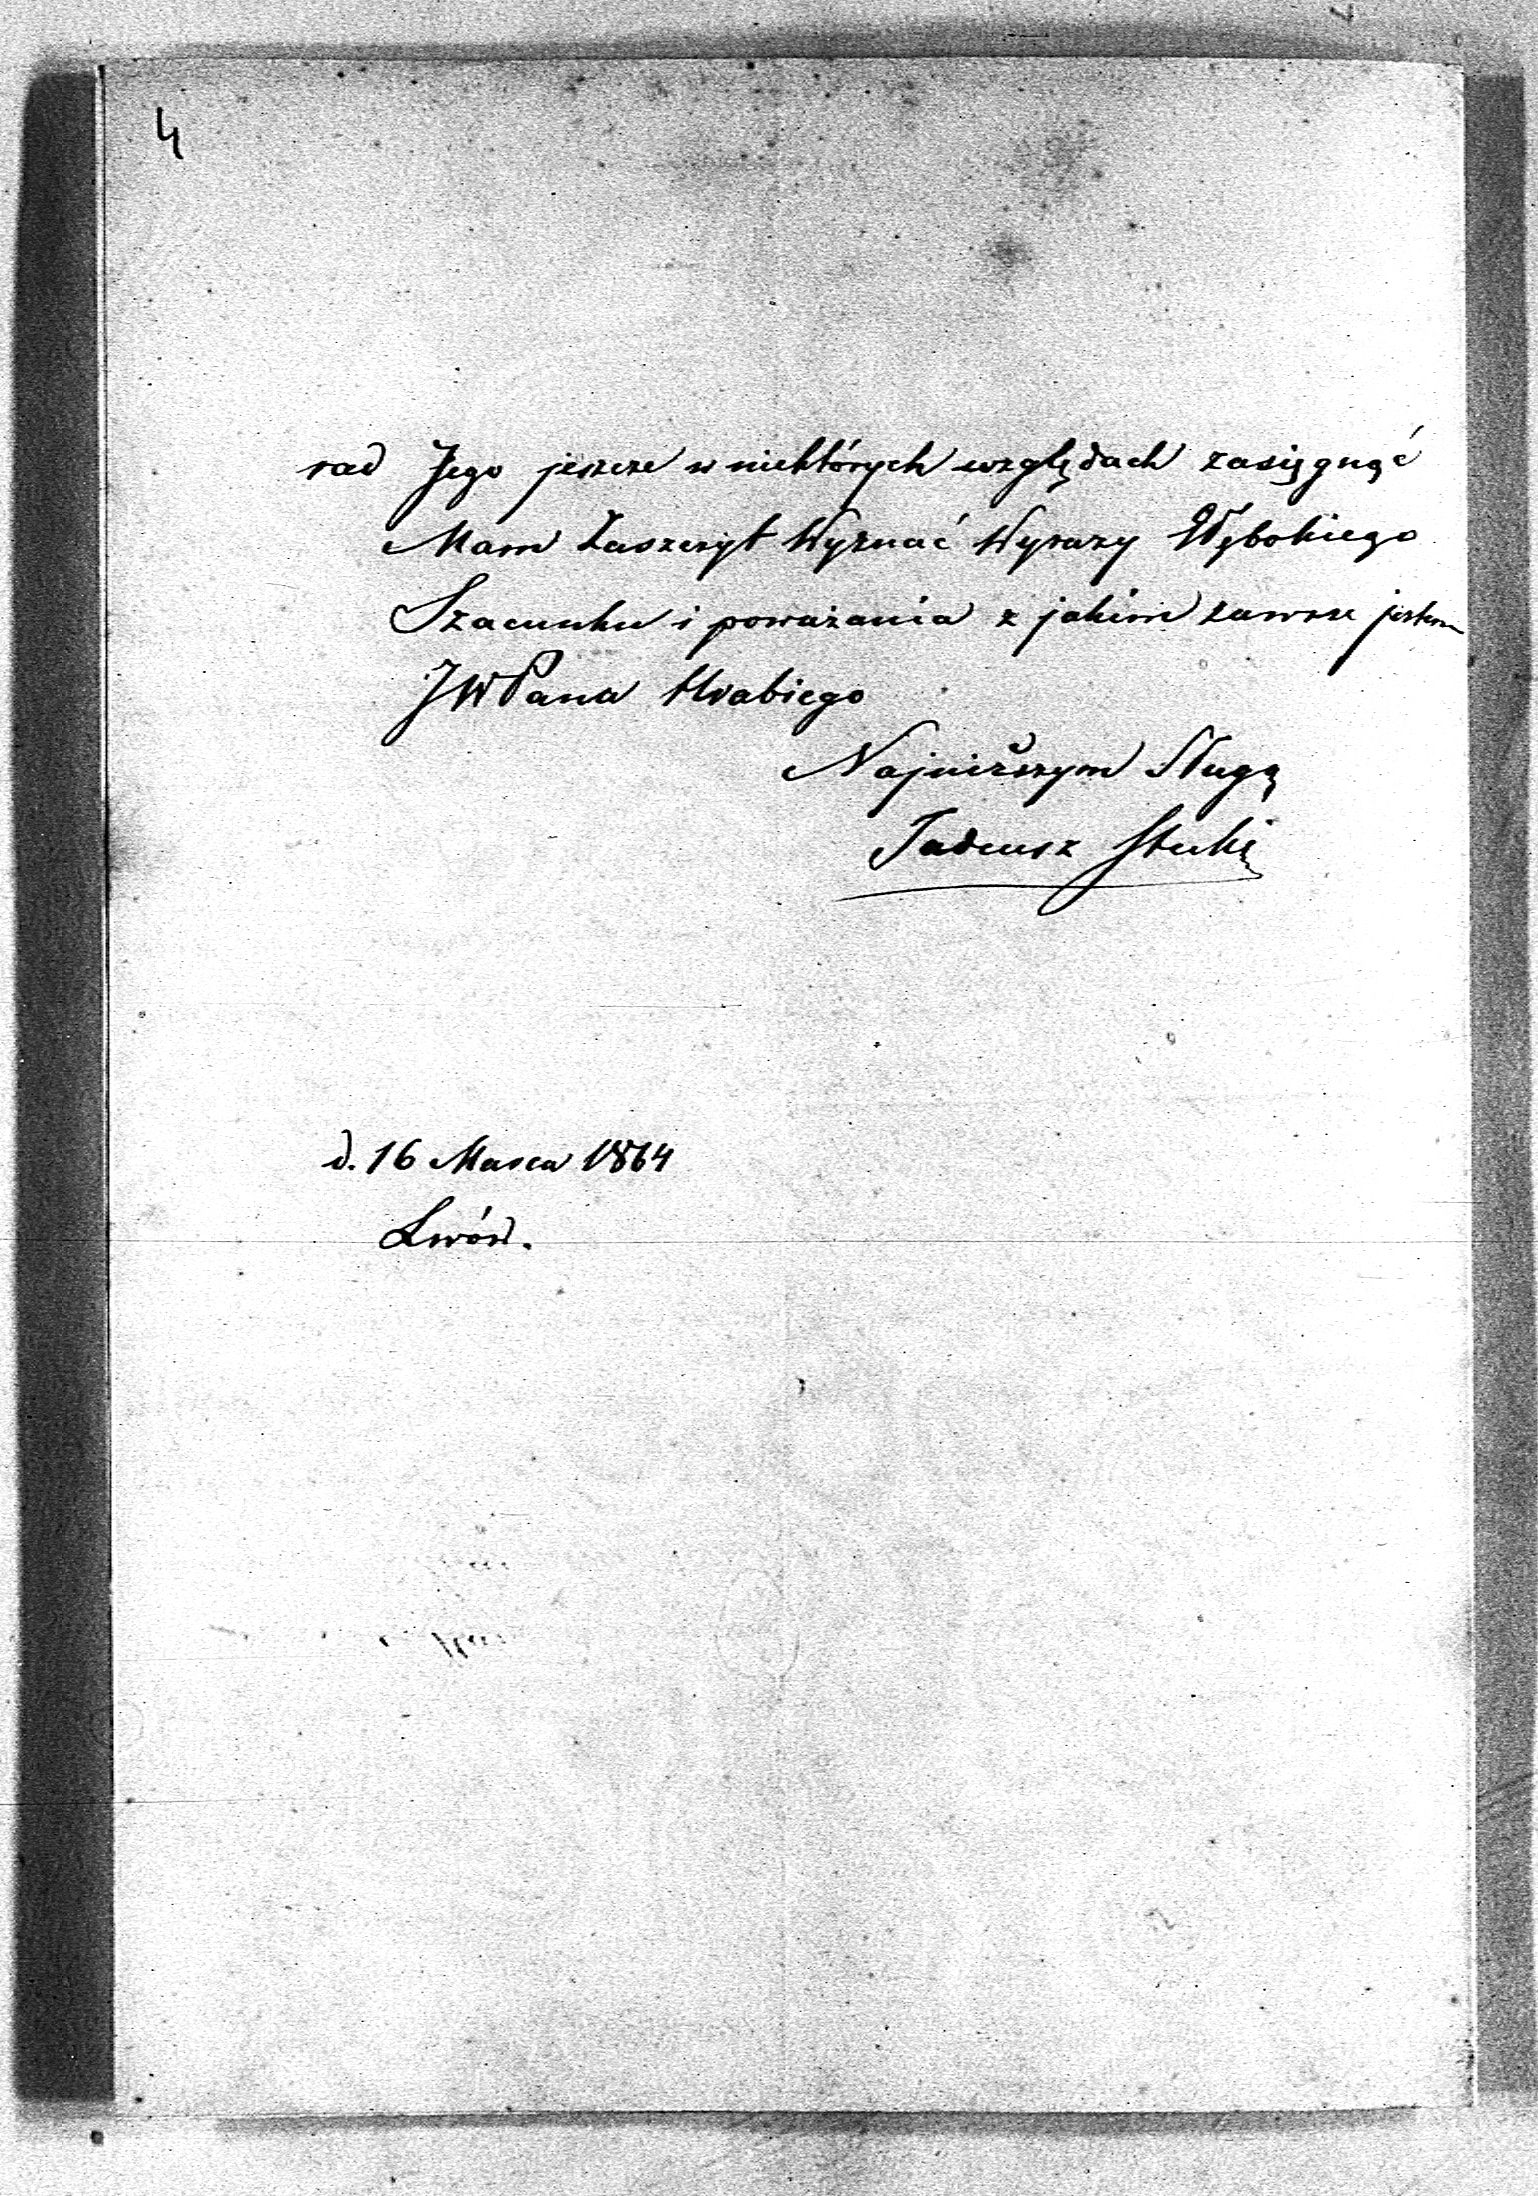 4
rad Jego jeszcze w niektórych względach zasięgnąć
Mam Zaszczyt Wyznać Wyrazy Głębokiego
Szacunku i poważania z jakim zawsze jestem
JWPana Hrabiego
Najniższym Sługą
Tadeusz
d. 16 Marca 1864
Lwów.